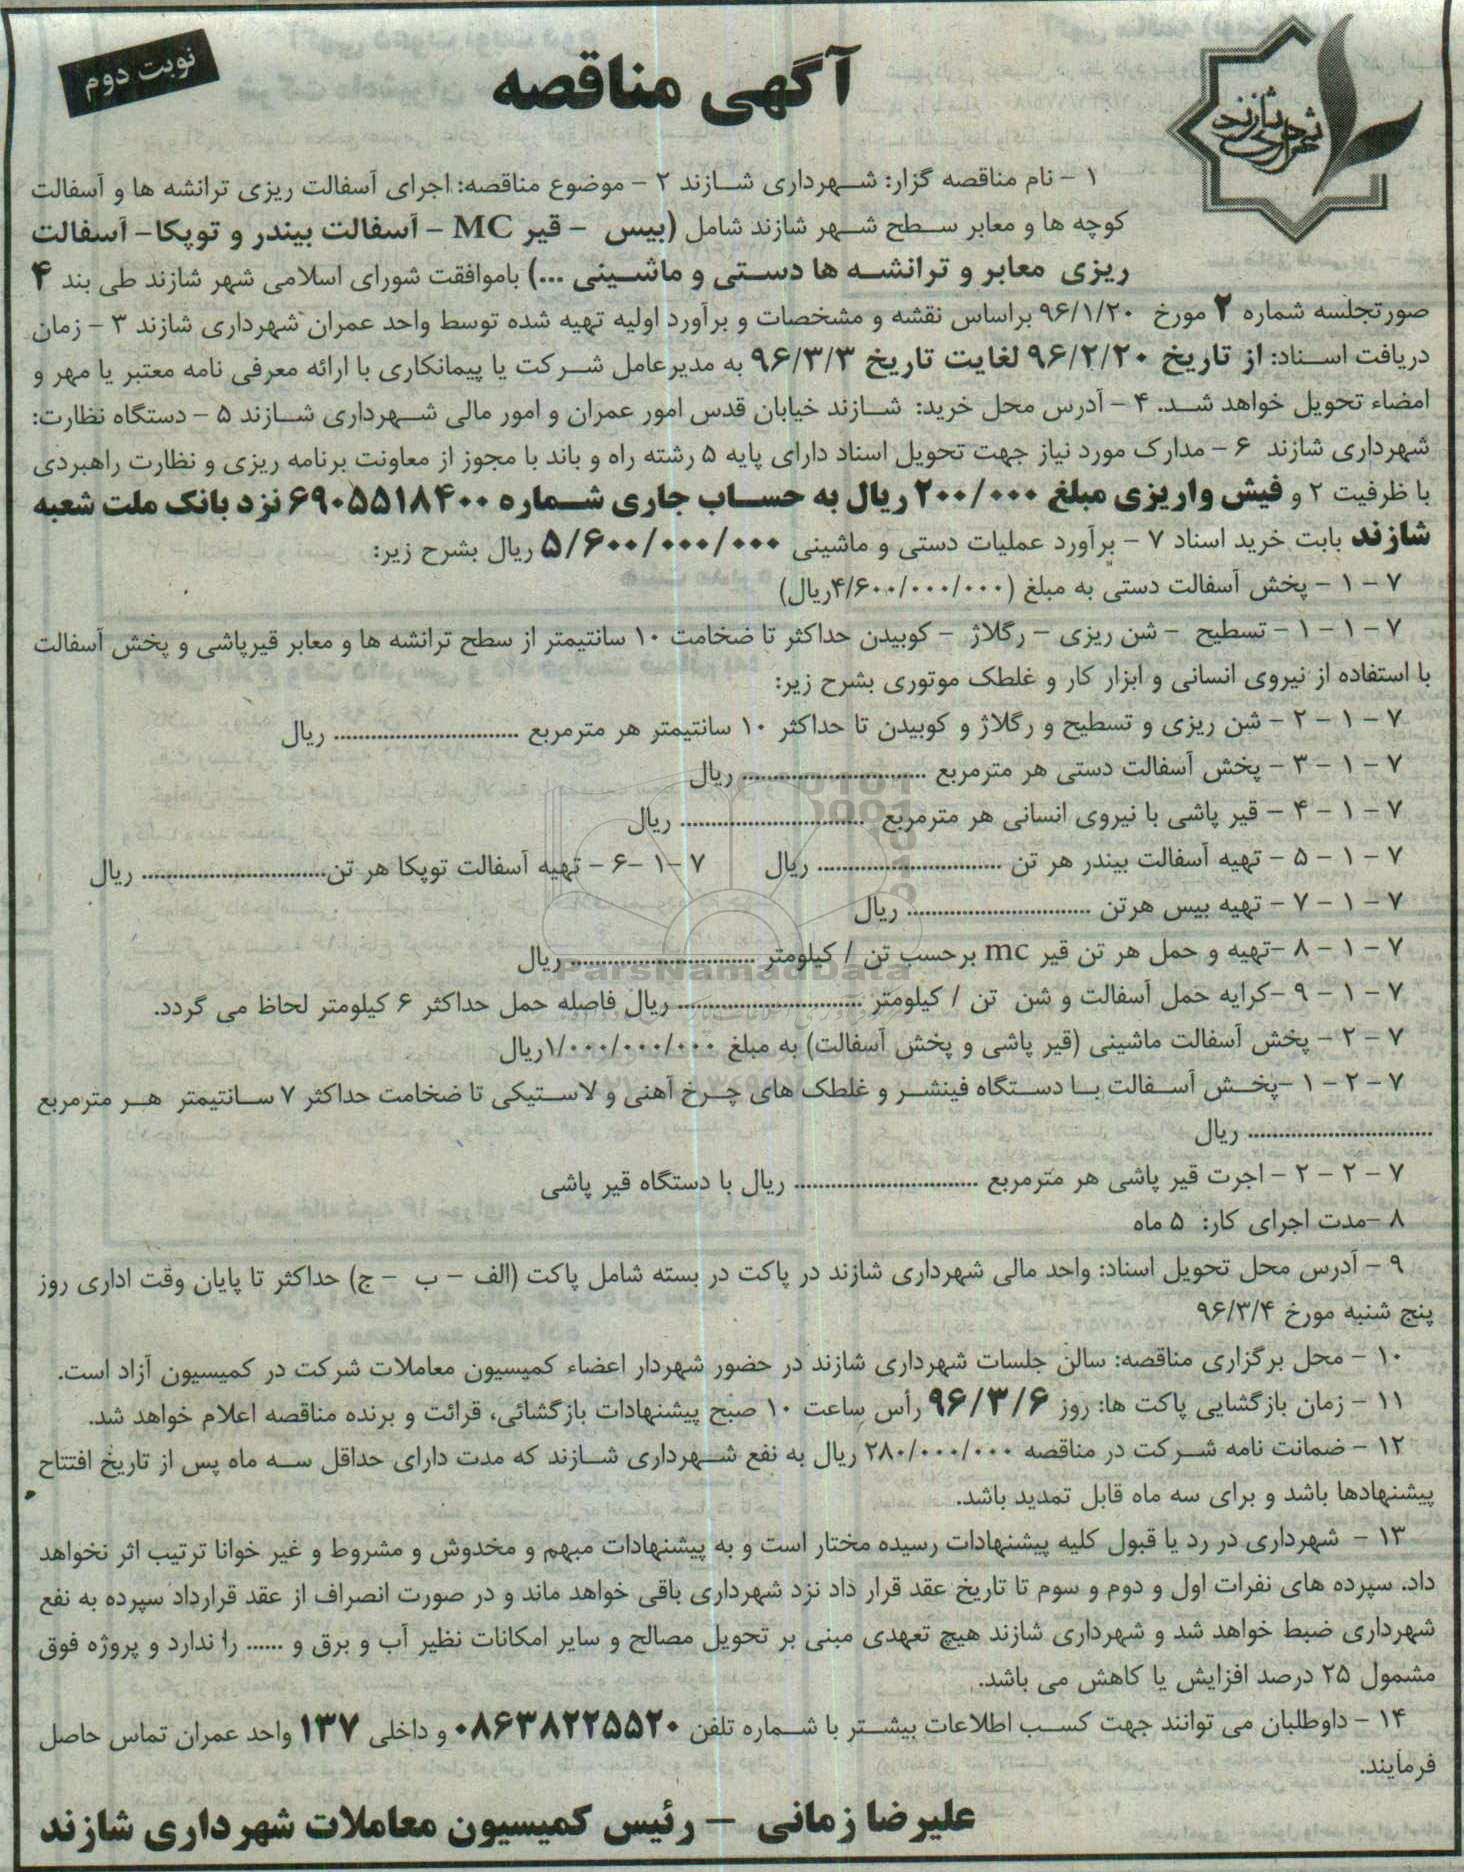 نوبت دوم
آگهی مناقصه
شهرداری شازند
۱ - نام مناقصه گزار: شهرداری شازند ۲ - موضوع مناقصه: اجرای آسفالت ریزی ترانشه ها و آسفالت
کوچه ها و معابر سطح شهر شازند شامل (بیس - قیر MC - آسفالت بیندر و توپکا- آسفالت
ریزی معابر و ترانشه ها دستی و ماشینی ...) باموافقت شورای اسلامی شهر شازند طی بند ۴
صورتجلسه شماره ۲ مورخ ۹۶/۱/۲۰ براساس نقشه و مشخصات و برآورد اولیه تهیه شده توسط واحد عمران شهرداری شازند ۳ - زمان
دریافت اسناد: از تاریخ ۹۶/۲/۲۰ لغایت تاریخ ۹۶/۳/۳ به مدیرعامل شرکت یا پیمانکاری با ارائه معرفی نامه معتبر یا مهر و
امضاء تحویل خواهد شد. ۴ - آدرس محل خرید: شازند خیابان قدس امور عمران و امور مالی شهرداری شازند ۵ - دستگاه نظارت:
شهرداری شازند ۶ - مدارک مورد نیاز جهت تحویل اسناد دارای پایه ۵ رشته راه و باند با مجوز از معاونت برنامه ریزی و نظارت راهبردی
با ظرفیت ۲ و فیش واریزی مبلغ ۲۰۰/۰۰۰ ریال به حساب جاری شماره ۶۹۰۵۵۱۸۴۰۰ نزد بانک ملت شعبه
شازند بابت خرید اسناد ۷ - برآورد عملیات دستی و ماشینی ۵/۶۰۰/۰۰۰/۰۰۰ ریال بشرح زیر:
۷ - ۱ - پخش آسفالت دستی به مبلغ (۴/۶۰۰/۰۰۰/۰۰۰ریال)
۷ - ۱ - ۱ - تسطیح - شن ریزی - رگلاژ - کوبیدن حداکثر تا ضخامت ۱۰ سانتیمتر از سطح ترانشه ها و معابر قیرپاشی و پخش آسفالت
با استفاده از نیروی انسانی و ابزار کار و غلطک موتوری بشرح زیر:
۷ - ۱ - ۲ - شن ریزی و تسطیح و رگلاژ و کوبیدن تا حداکثر ۱۰ سانتیمتر هر مترمربع .............................. ریال
۷ - ۱ - ۳ - پخش آسفالت دستی هر مترمربع .............................. ریال
۷ - ۱ - ۴ - قیر پاشی با نیروی انسانی هر مترمربع .............................. ریال
۷ - ۱ - ۵ - تهیه آسفالت بیندر هر تن .............................. ریال ۷ -۱ -۶ - تهیه آسفالت توپکا هر تن.............................. ریال
۷ - ۱ - ۷ - تهیه بیس هرتن .............................. ریال
۷ - ۱ - ۸ -تهیه و حمل هر تن قیر mc برحسب تن / کیلومتر .............................. ریال
۷ - ۱ - ۹ -کرایه حمل آسفالت و شن تن / کیلومتر .............................. ریال فاصله حمل حداکثر ۶ کیلومتر لحاظ می گردد.
۷ - ۲ - پخش آسفالت ماشینی (قیر پاشی و پخش آسفالت) به مبلغ ۱/۰۰۰/۰۰۰/۰۰۰ریال
۷ - ۲ - ۱ -پخش آسفالت با دستگاه فینشر و غلطک های چرخ آهنی و لاستیکی تا ضخامت حداکثر ۷ سانتیمتر هر مترمربع
.............................. ریال
۷ - ۲ - ۲ - اجرت قیر پاشی هر مترمربع .............................. ریال با دستگاه قیر پاشی
۸ -مدت اجرای کار: ۵ ماه
۹ - آدرس محل تحویل اسناد: واحد مالی شهرداری شازند در پاکت در بسته شامل پاکت (الف - ب - ج) حداکثر تا پایان وقت اداری روز
پنج شنبه مورخ ۹۶/۳/۴
۱۰ - محل برگزاری مناقصه: سالن جلسات شهرداری شازند در حضور شهردار اعضاء کمیسیون معاملات شرکت در کمیسیون آزاد است.
۱۱ - زمان بازگشایی پاکت ها: روز ۹۶/۳/۶ رأس ساعت ۱۰ صبح پیشنهادات بازگشائی، قرائت و برنده مناقصه اعلام خواهد شد.
۱۲ - ضمانت نامه شرکت در مناقصه ۲۸۰/۰۰۰/۰۰۰ ریال به نفع شهرداری شازند که مدت دارای حداقل سه ماه پس از تاریخ افتتاح
پیشنهادها باشد و برای سه ماه قابل تمدید باشد.
۱۳ - شهرداری در رد یا قبول کلیه پیشنهادات رسیده مختار است و به پیشنهادات مبهم و مخدوش و مشروط و غیر خوانا ترتیب اثر نخواهد
داد. سپرده های نفرات اول و دوم و سوم تا تاریخ عقد قرار داد نزد شهرداری باقی خواهد ماند و در صورت انصراف از عقد قرارداد سپرده به نفع
شهرداری ضبط خواهد شد و شهرداری شازند هیچ تعهدی مبنی بر تحویل مصالح و سایر امکانات نظیر آب و برق و ...... را ندارد و پروژه فوق
مشمول ۲۵ درصد افزایش یا کاهش می باشد.
۱۴ - داوطلبان می توانند جهت کسب اطلاعات بیشتر با شماره تلفن ۰۸۶۳۸۲۲۵۵۲۰ و داخلی ۱۳۷ واحد عمران تماس حاصل
فرمایند.
علیرضا زمانی - رئیس کمیسیون معاملات شهرداری شازند
ParsNamadData